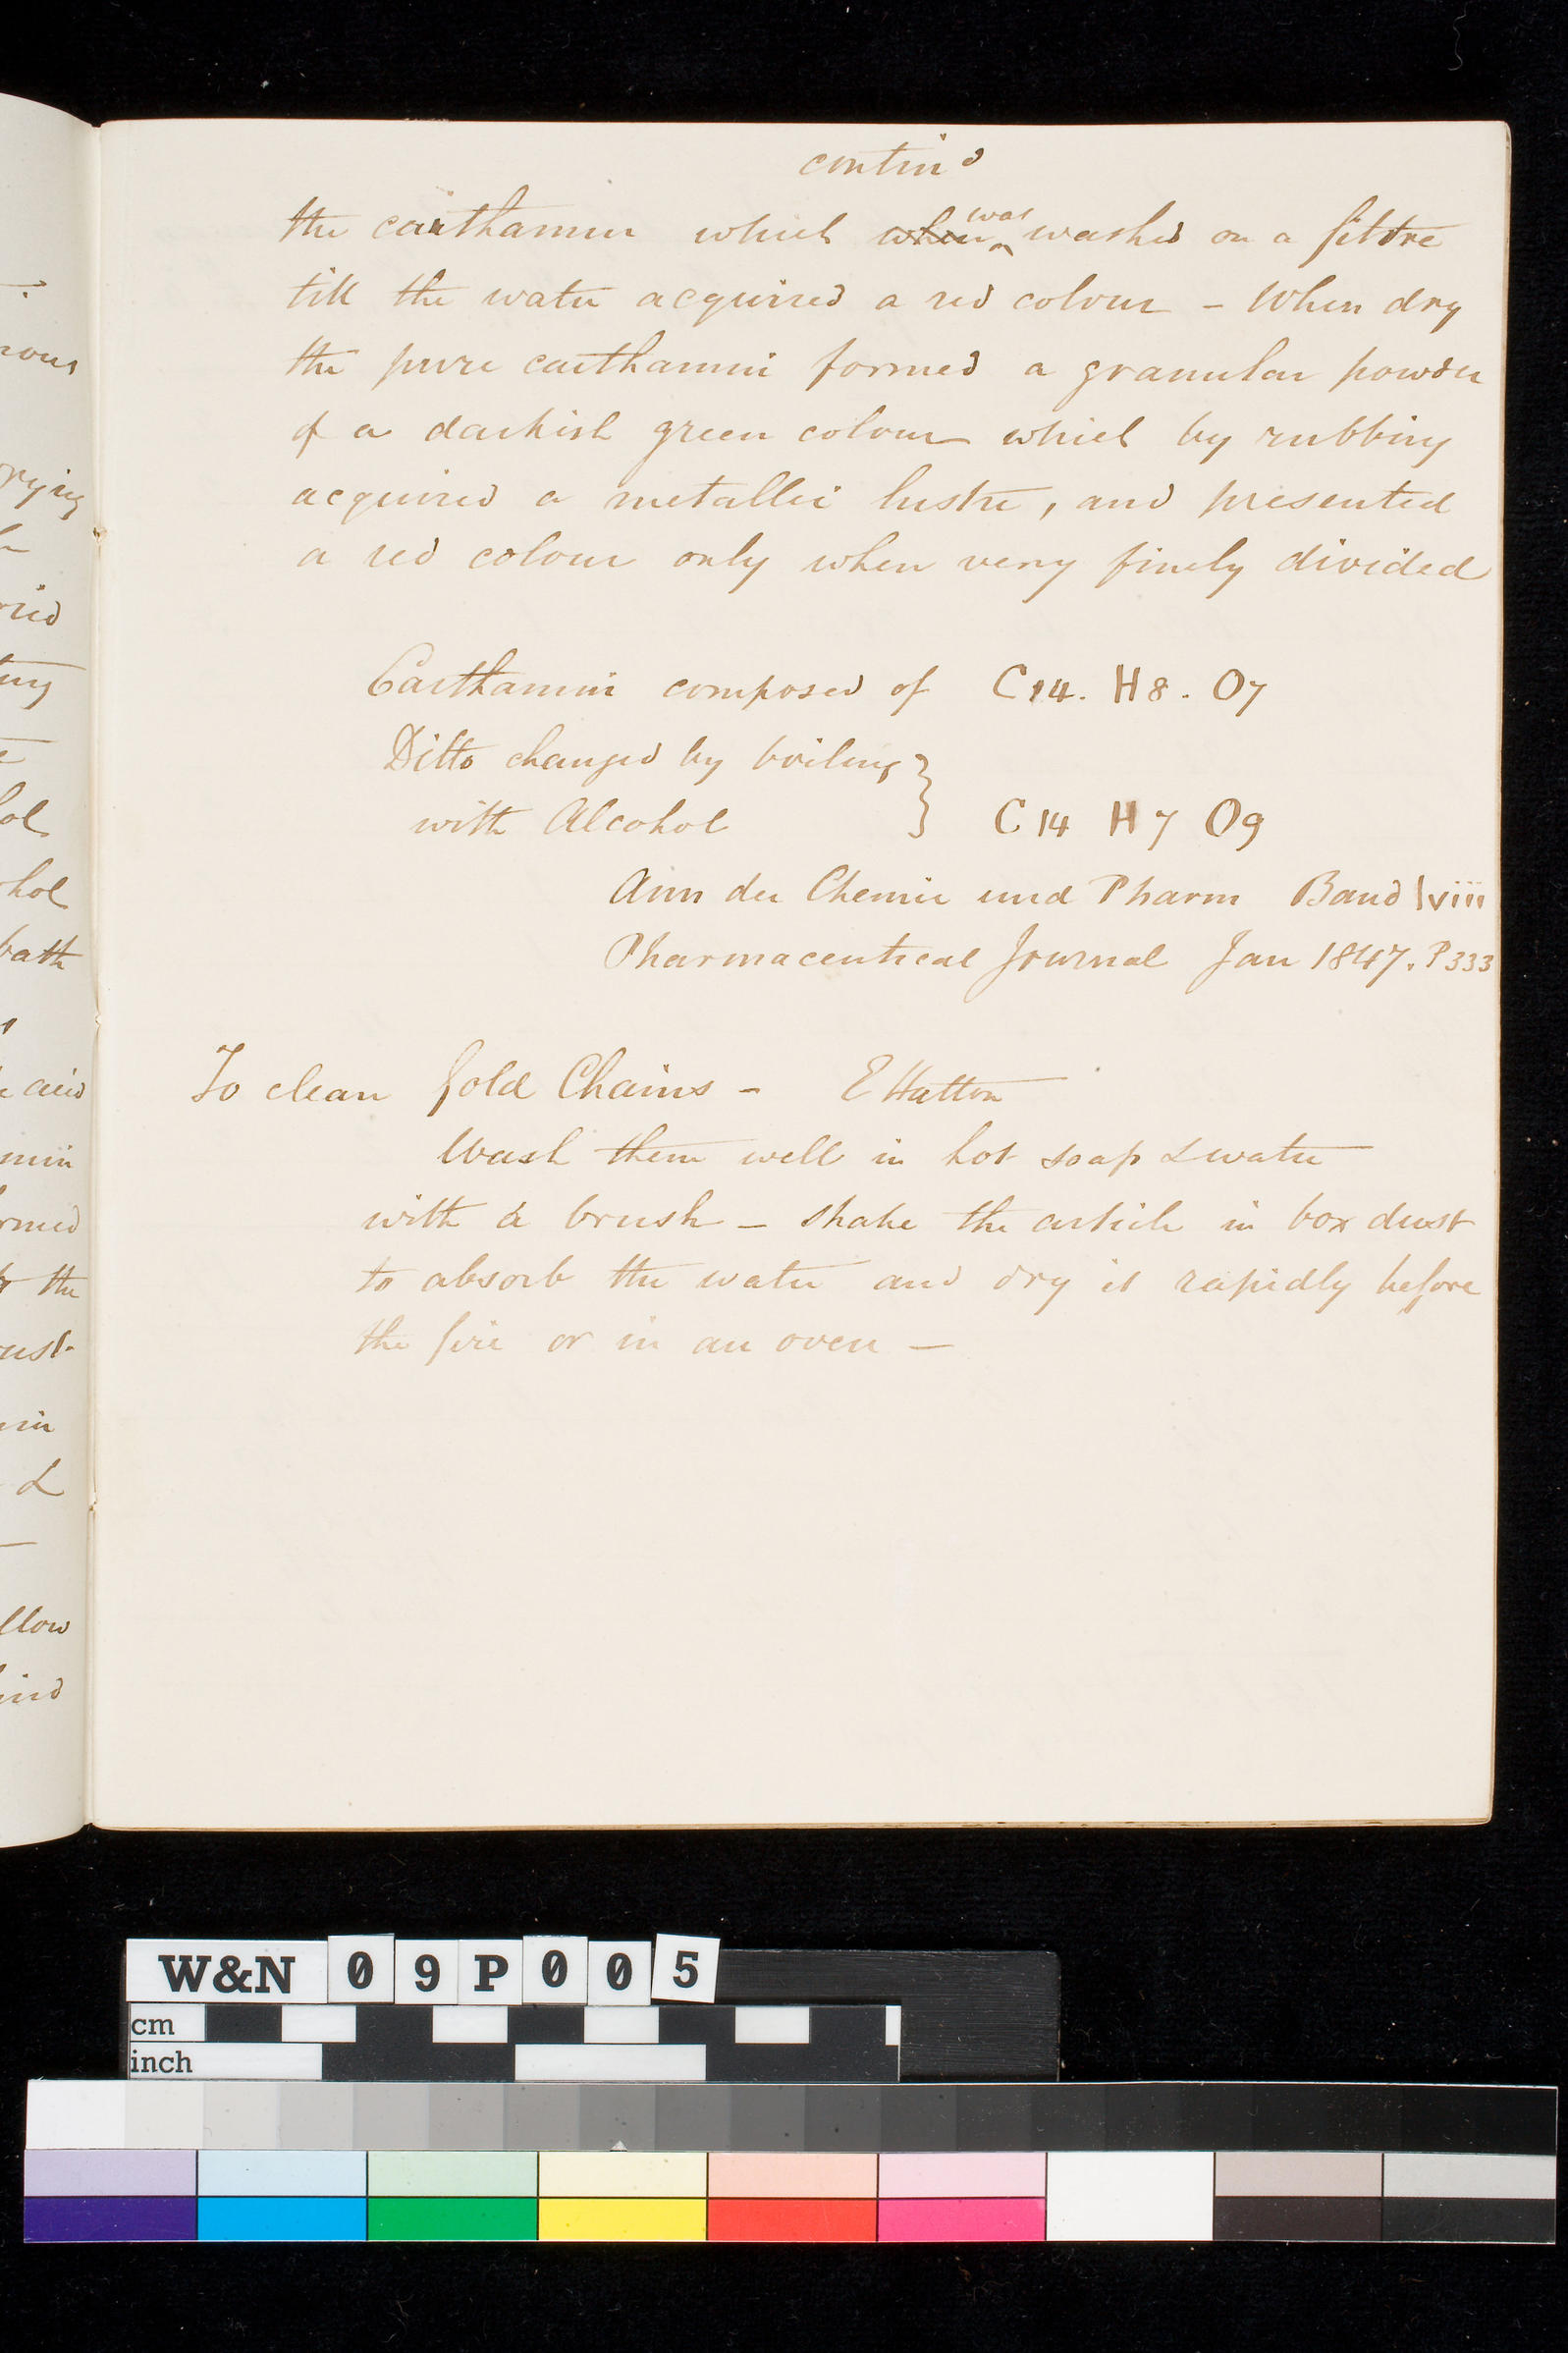 contind
the carthamin which when was washed on a filtre
till the water acquired a red colour - When dry
the pure carthamin formed a granular powder
of a darkish green colour which by rubbing
acquired a metallic lustre, and presented
a red colour only when very finely divided
Carthamin composed of C14. H8. O7
Ditto changed by boiling }
with Alcohol C14 H7 O9
Ann der Chemie und Pharm Band lviii
Pharmaceutical Journal Jan 1847. P333
To clean Gold Chains - E Hatton
Wash them well in hot soap & water
with a brush - shake the article in box dust
to absorb the water and dry it rapidly before
the fire or in an oven -
rying
ried
hol
bath
acid
min
rmed
the
min
&
llow
W&N 09P005
cm
inch